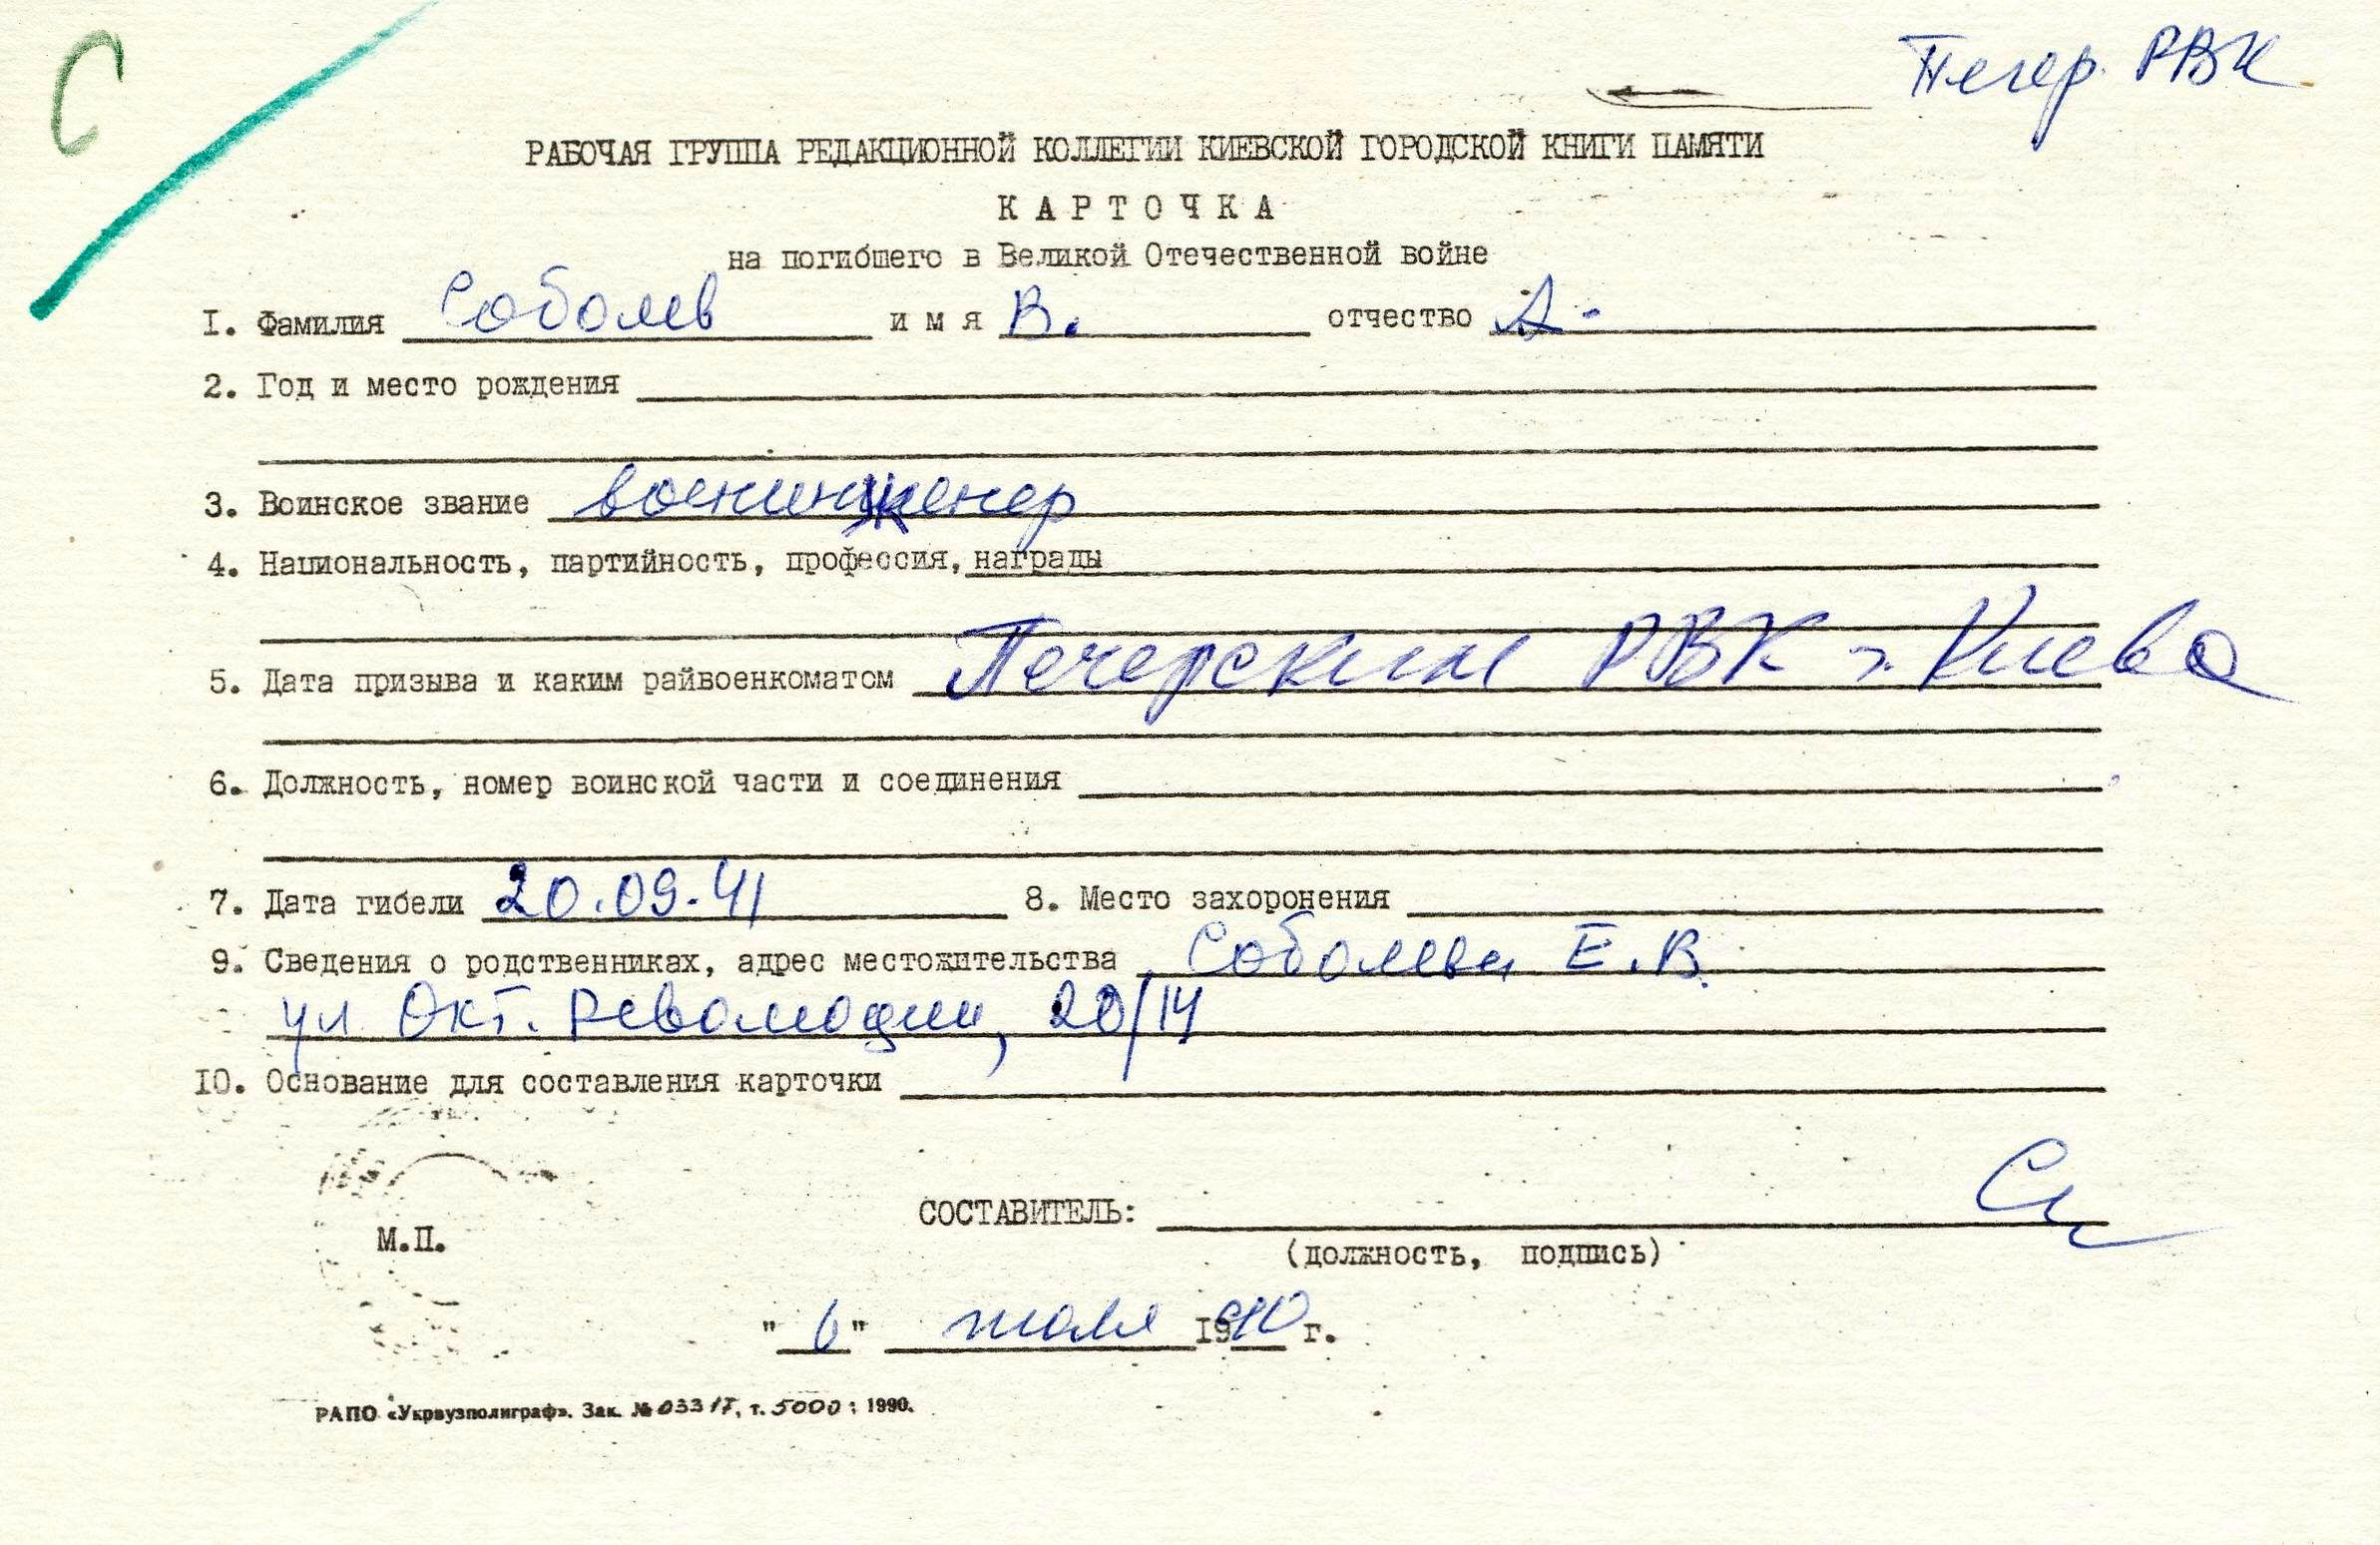 С
Печер. РВК
РАБОЧАЯ ГРУППА РЕДАКЦИОННОЙ КОЛЛЕГИИ КИЕВСКОЙ ГОРОДСКОЙ КНИГИ ПАМЯТИ
КАРТОЧКА
на погибшего в Великой Отечественной войне
I. Фамилия Соболев имя В. отчество А.
2. Год и место рождения
3. Воинское звание военинженер
4. Национальность, партийность, профессия, награды
5. Дата призыва и каким райвоенкоматом Печерским РВК г. Киева
6. Должность, номер воинской части и соединения
7. Дата гибели 20.09.41 8. Место захоронения
9. Сведения о родственниках, адрес местожительства Соболева Е.В.
ул Окт. Революции, 20/14
IO. Основание для составления карточки
СОСТАВИТЕЛЬ:
М.П.
(должность, подпись)
"6" июля I990 г.
РАПО «Укрвузполиграф». Зак. № 0331Т, т. 5000; 1990.